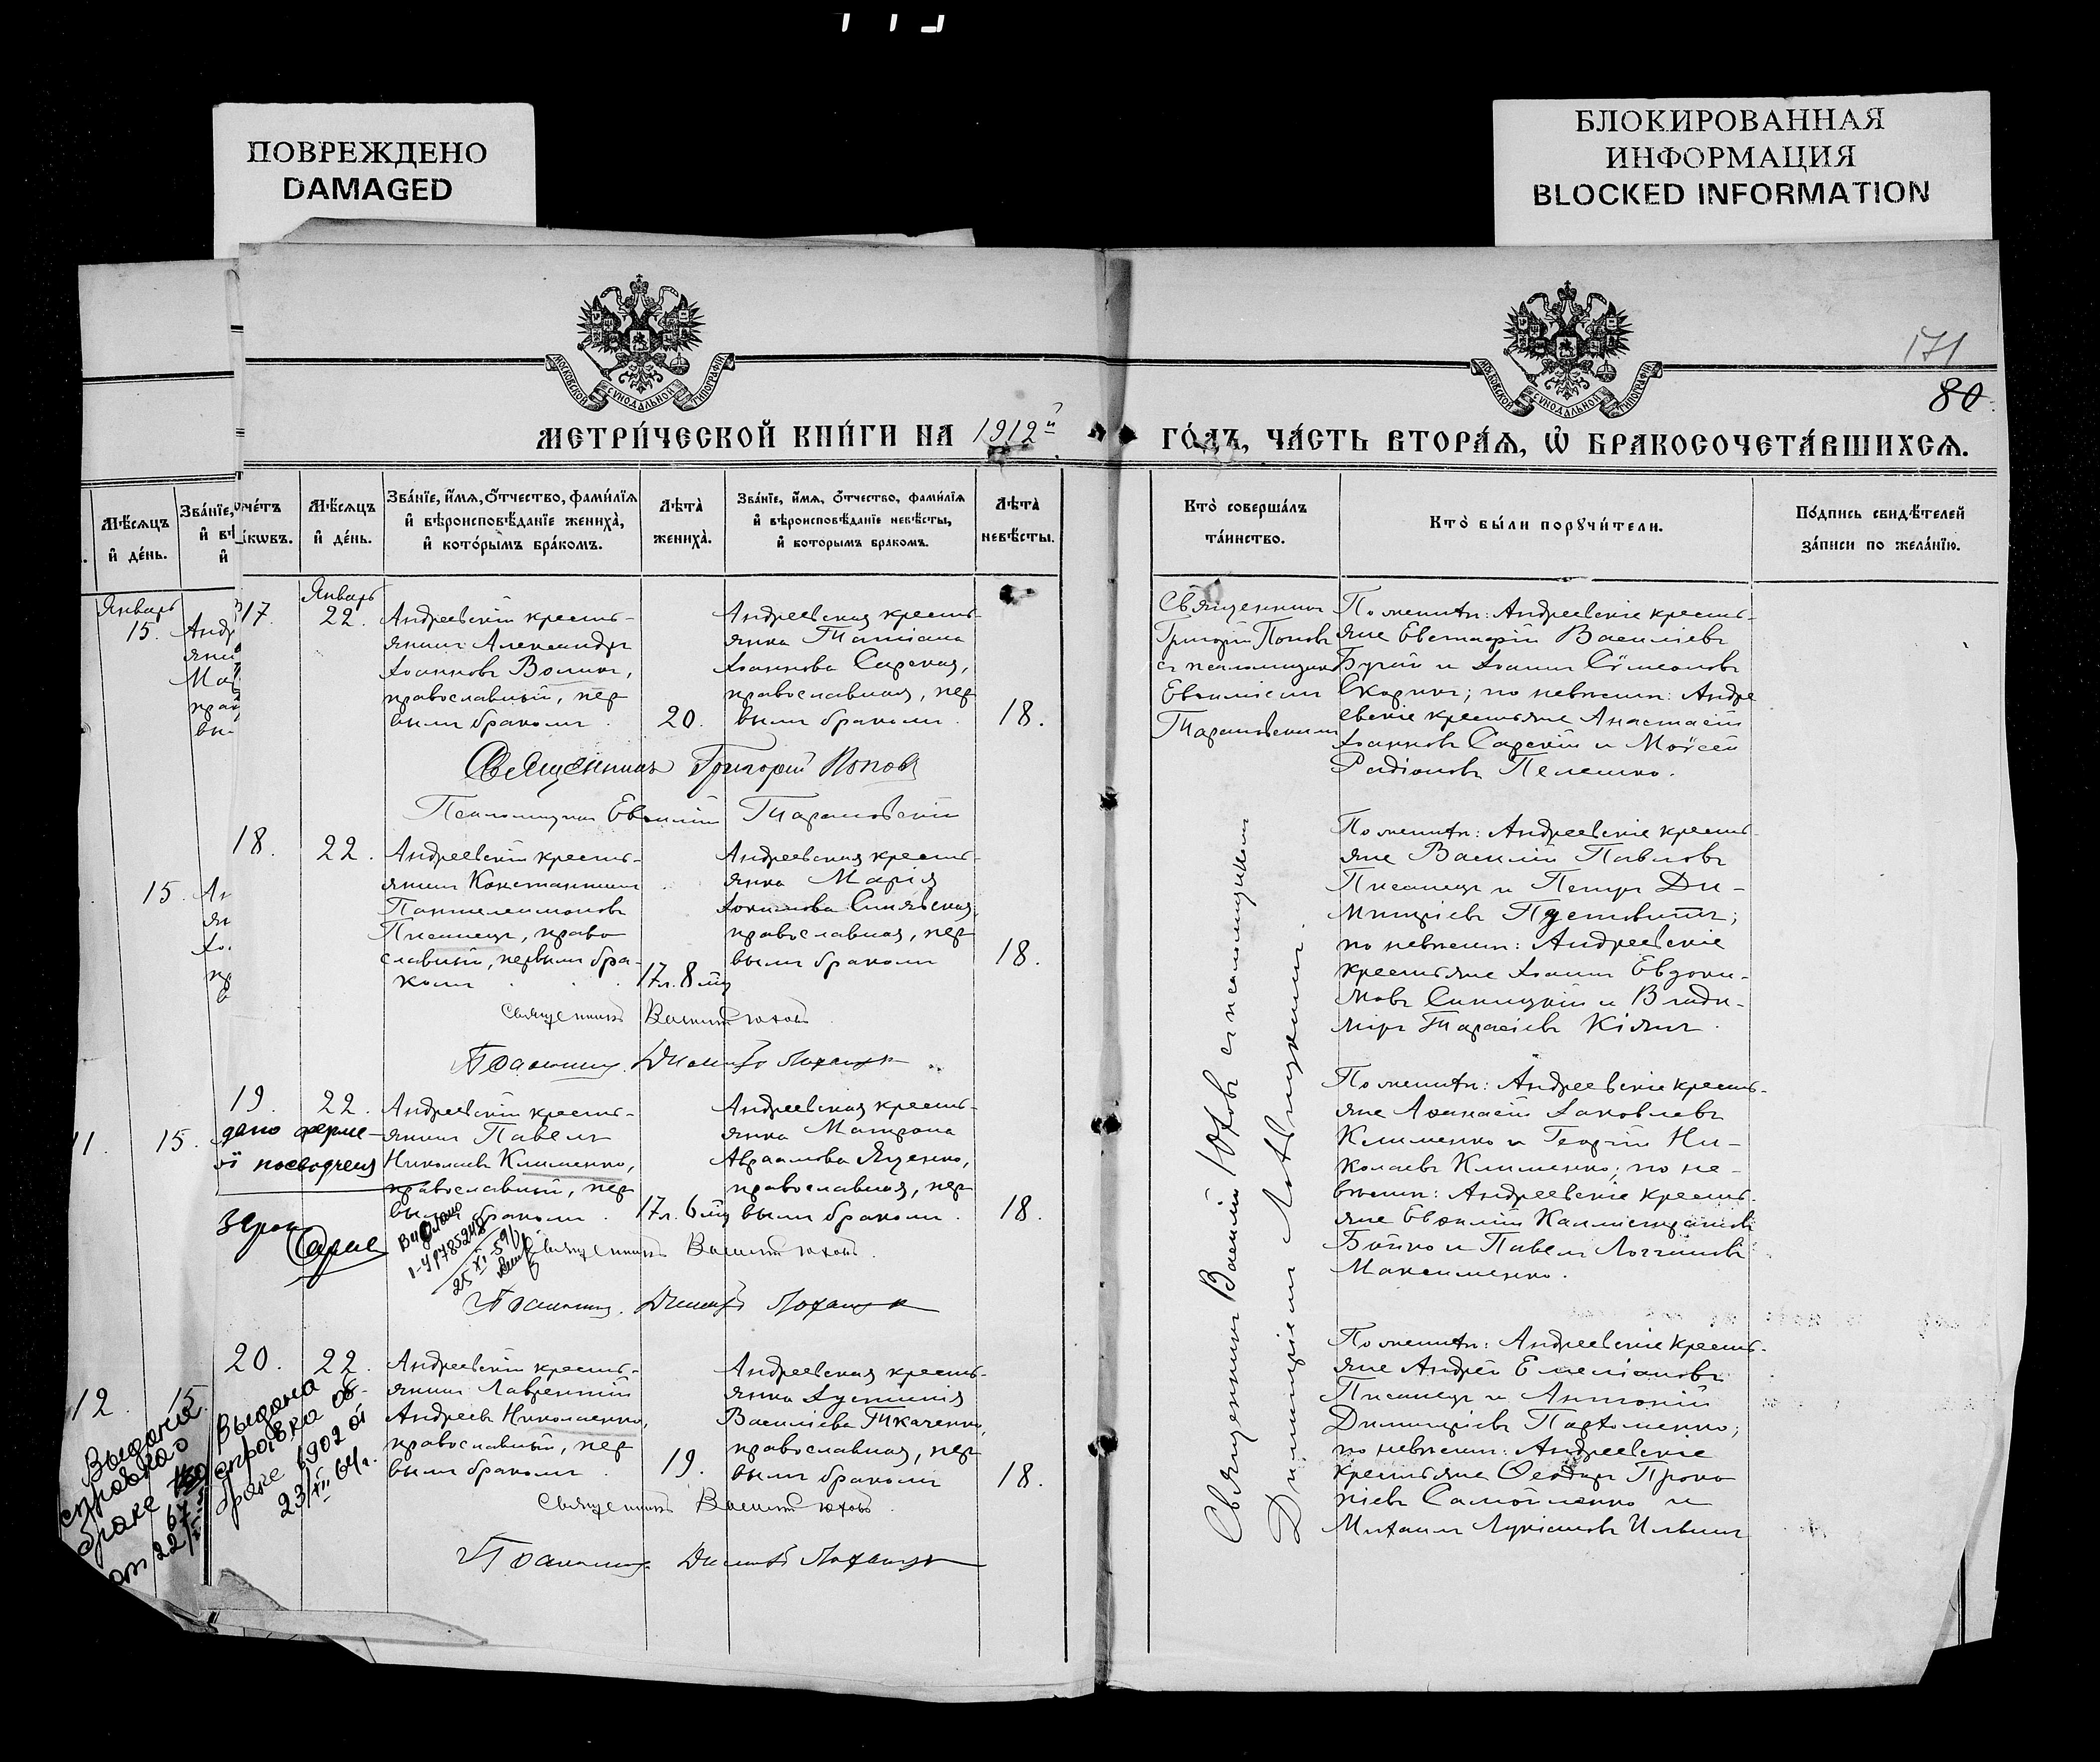 ПОВРЕЖДЕНО
DAMAGED
БЛОКИРОВАННАЯ
ИНФОРМАЦИЯ
BLOCKED INFORMATION
МОСКОВСКОЙ СѴНОДАЛЬНОЙ ТИПОГРАФІИ
МОСКОВСКОЙ СѴНОДАЛЬНОЙ ТИПОГРАФІИ
171
80
МЕТРИ́ЧЕСКОЙ КНИ́ГИ НА 1912й
ГО́ДЪ, ЧА́СТЬ ВТОРА́Я, Ѡ҆ БРАКОСОЧЕТА́ВШИХСѦ.
Мѣ́сяцъ
и҆ де́нь.
Мѣ́сяцъ
и҆ де́нь.
Зва́нїе, и҆́мя, ѻ҆́тчество, фами́лїя
и҆ вѣроисповѣ́данїе жениха̀,
и҆ кото́рымъ бра́комъ.
Лѣ́та
жениха̀.
Зва́нїе, и҆́мя, ѻ҆́тчество, фами́лїя
и҆ вѣроисповѣ́данїе невѣ́сты,
и҆ которымъ бракомъ.
Лѣ́та
невѣ́сты.
Кто̀ соверша́лъ
та́инство.
Кто̀ бы́ли порꙋчи́тели.
По́дпись свидѣ́телей
за́писи по жела́нїю.
Январь
15.
15.
15.
12.
15.
17.
Январь
22.
Андреевскій кресть-
янинъ Александръ
Іоанновъ Воликъ,
православный, пер
вымъ бракомъ.
20.
Андреевская кресть-
янка Татіана
Іоаннова Сарская,
православная, пер
вымъ бракомъ.
18.
Священникъ
Григорій Поповъ
съ псаломщикомъ
Евѳиміемъ
Тарановскимъ
По женихѣ: Андреевскіе кресть-
яне Евстафій Василіевъ
Бугай и Іоаннъ Сѵмеоновъ
Скорикъ; по невѣстѣ: Андре
евскіе крестьяне Анастасій
Іоанновъ Сарскій и Моѵсей
Родіоновъ Пелешко.
Священникъ Григорій Поповъ
Псаломщикъ Евѳимій Тарановскій
18.
22.
Андреевскій кресть-
янинъ Константинъ
Пантелеимоновъ
Писанецъ, право
славный, первымъ бра-
комъ
17 л. 8 мц
Андреевская кресть-
янка Марія
Іокимова Синявская,
православная, пер
вымъ бракомъ
18.
По женихѣ: Андреевскіе кресть-
яне Василій Павловъ
Писанецъ и Петръ Ди-
митріевъ Пустовитъ;
по невѣстѣ: Андреевскіе
крестьяне Іоаннъ Евдоки-
мовъ Синицкій и Влади-
міръ Тарасіевъ Кіянъ.
Священникъ Василій Юховъ
Псаломщ. Димитр
19.
22.
Андреевскій кресть-
янинъ Павелъ
Николаевъ Клименко,
православный, пер
вымъ бракомъ.
17 л. 6 мц
Андреевская кресть-
янка Матрона
Авраамова Яценко,
православная, пер
вымъ бракомъ.
18.
По женихѣ: Андреевскіе кресть-
яне Аѳанасій Іаковлевъ
Клименко и Георгій Ни-
колаевъ Клименко; по не-
вѣстѣ: Андреевскіе кресть-
яне Евѳимій Каллистратовъ
Бойко и Павелъ Логгиновъ
Максименко.
Видано
25 XI
Священникъ Василій Юховъ
Псаломщ. Димитр
20.
22.
Андреевскій кресть-
янинъ Лаврентій
Андреевъ Николаенко,
православный, пер
вымъ бракомъ.
19.
Андреевская кресть-
янка Іустинія
Василіева Ткаченко,
православная, пер
вымъ бракомъ
18.
По женихѣ: Андреевскіе кресть-
яне Андрей Емеліановъ
Писанецъ и Антоній
Димитріевъ Пархоменко;
по невѣстѣ: Андреевскіе
крестьяне Ѳеодоръ Проко
піевъ Самойленко и
Михаилъ Лукіановъ Ильинъ
Священникъ Василій Юховъ
Псаломщ. Димитр
Выдана
справка об
браке 6902 от
23/XII 64 г.
Выдана
справка о
браке
от 22
Священникъ Василій Юховъ съ псаломщикомъ
Димитріемъ